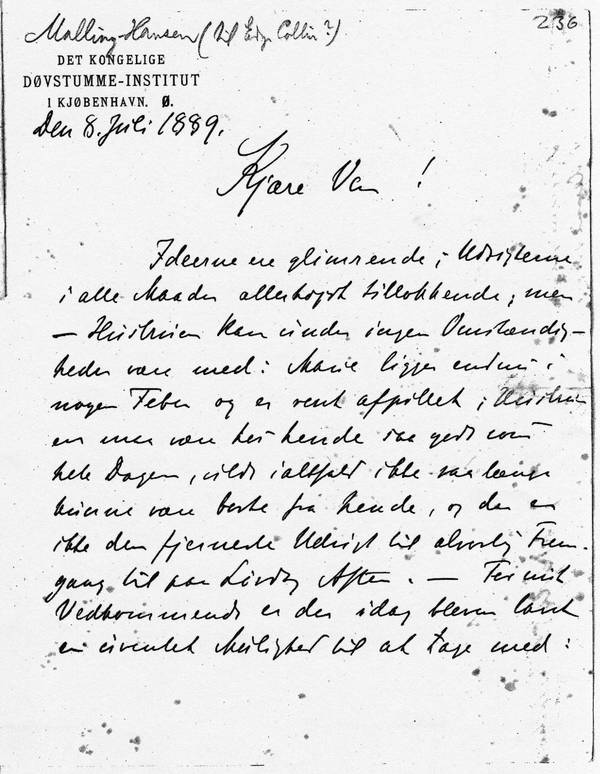 236
Malling-Hansen (til Edg. Collin?)
DET KONGELIGE
DØVSTUMME-INSTITUT
I KJØBENHAVN. Ø.
Den 8. Juli 1889.
Kjære Ven!
Ideerne ere glimrende; Udsigterne
i alle Maader allerhøjst tillokkende; men
— Hustruen kan under ingen Omstændig-
heder være med: Marie ligger endnu i
nogen Feber og er rent afpillet; Hustruen
maa være hos hende saa godt som
hele Dagen, vilde ialtfald ikke saa længe
kunne være borte fra hende, og der er
ikke den fjerneste Udsigt til alvorlig Frem-
gang til paa Lørdag Aften. — For mit
Vedkommende er der idag bleven
en uventet Mulighed til at tage med: